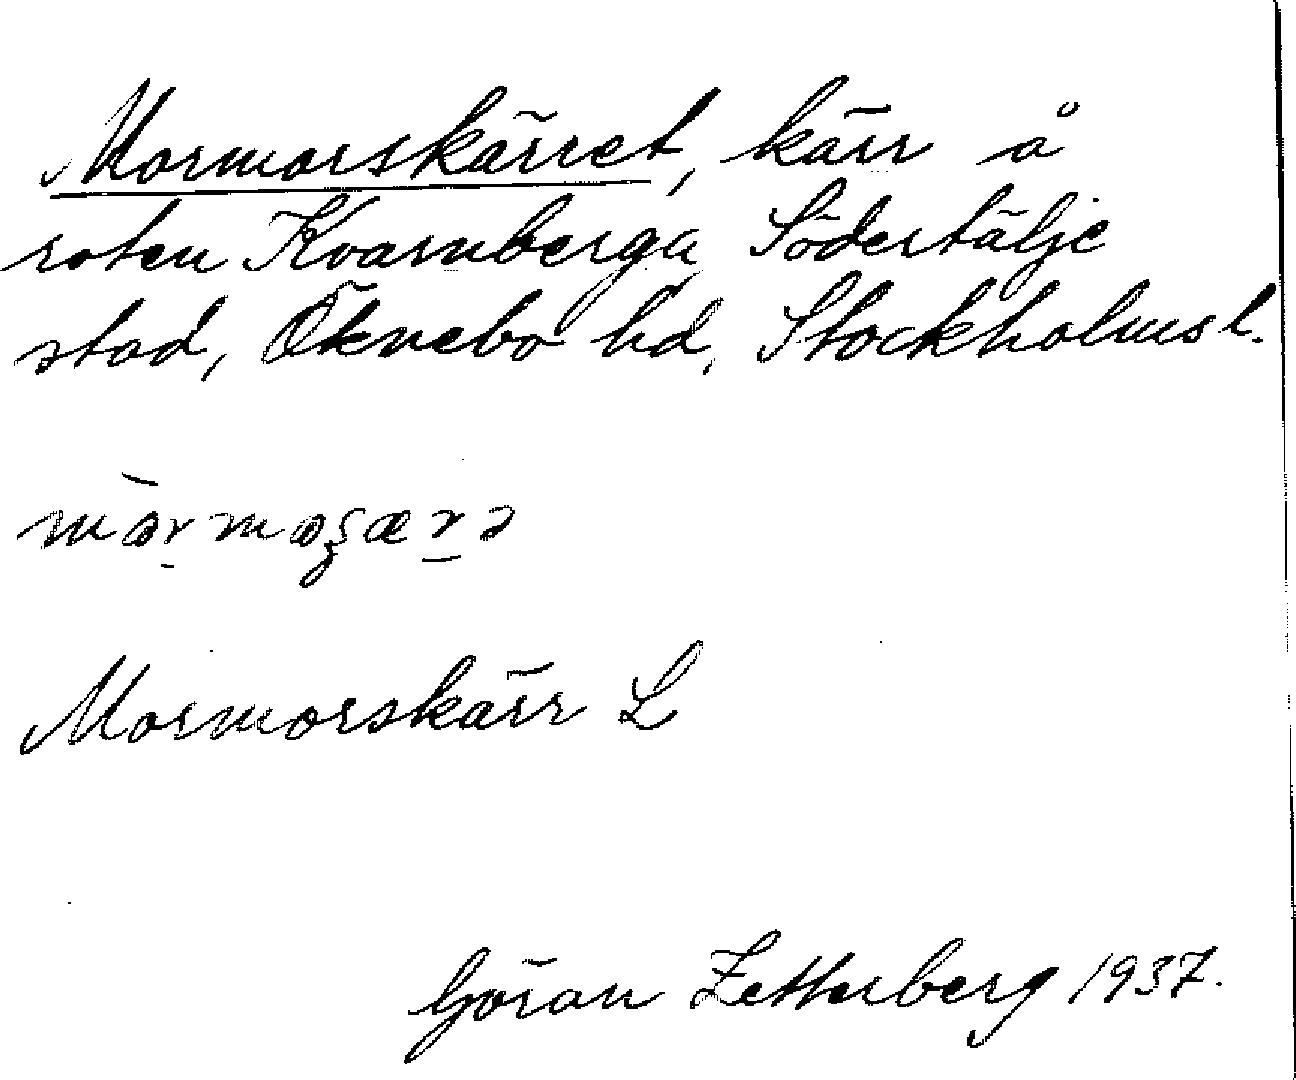 Mormorskärret, kärr å
roten Kvarnberga, Södertälje
stad, Öknebo hd, Stockholms l.
Mormorskärr L
Göran Zetterberg 1937.